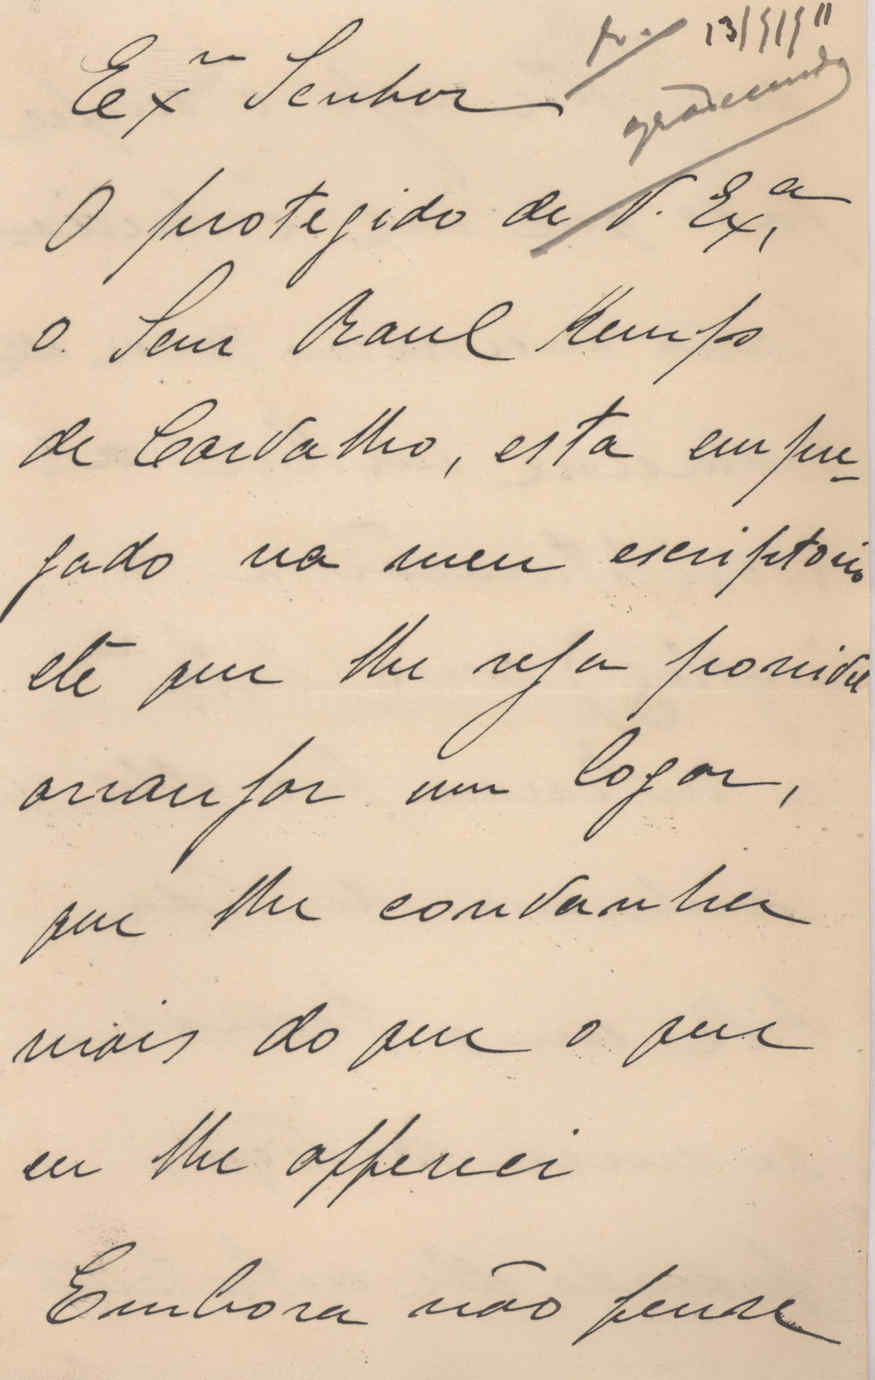 R. 13/5/911
agradecendo
Exmo Senhor
O protegido de V. Exa,
o Senr Raul Kemps
de Carvalho, esta empre-
gado no meu escriptorio
até que lhe seja possivel
arranjar um logar,
que lhe convenha
mais do que o que
eu lhe offereci
Embora não pense